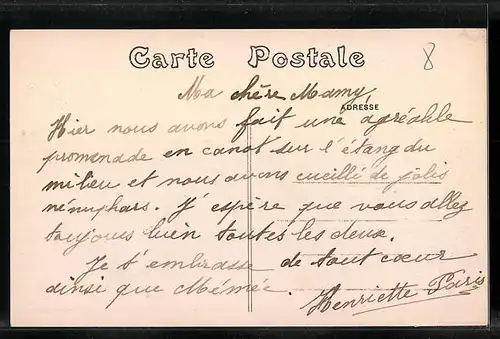 Carte Postale
8
Ma chère Mamy,
ADRESSE
Hier nous avons fait une agréable
promenade en canot sur l'étang du
milieu et nous avons cueilli de jolis
nénuphars. J'espère que vous allez
toujours bien toutes les deux.
Je t'embrasse de tout cœur
ainsi que Mémée.
Henriette Paris